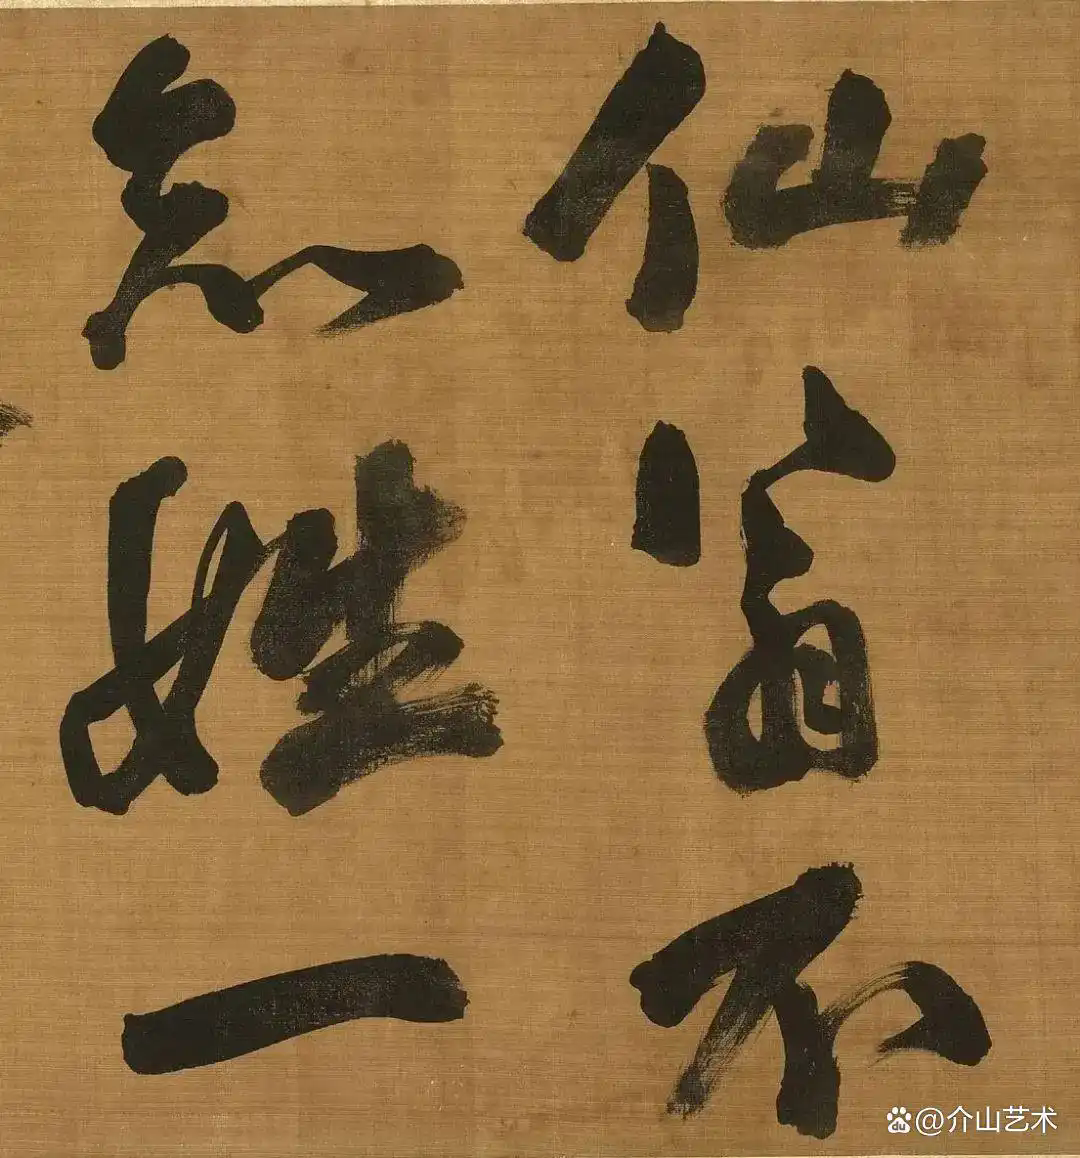 仙翁不
知姓一
du @介山艺术